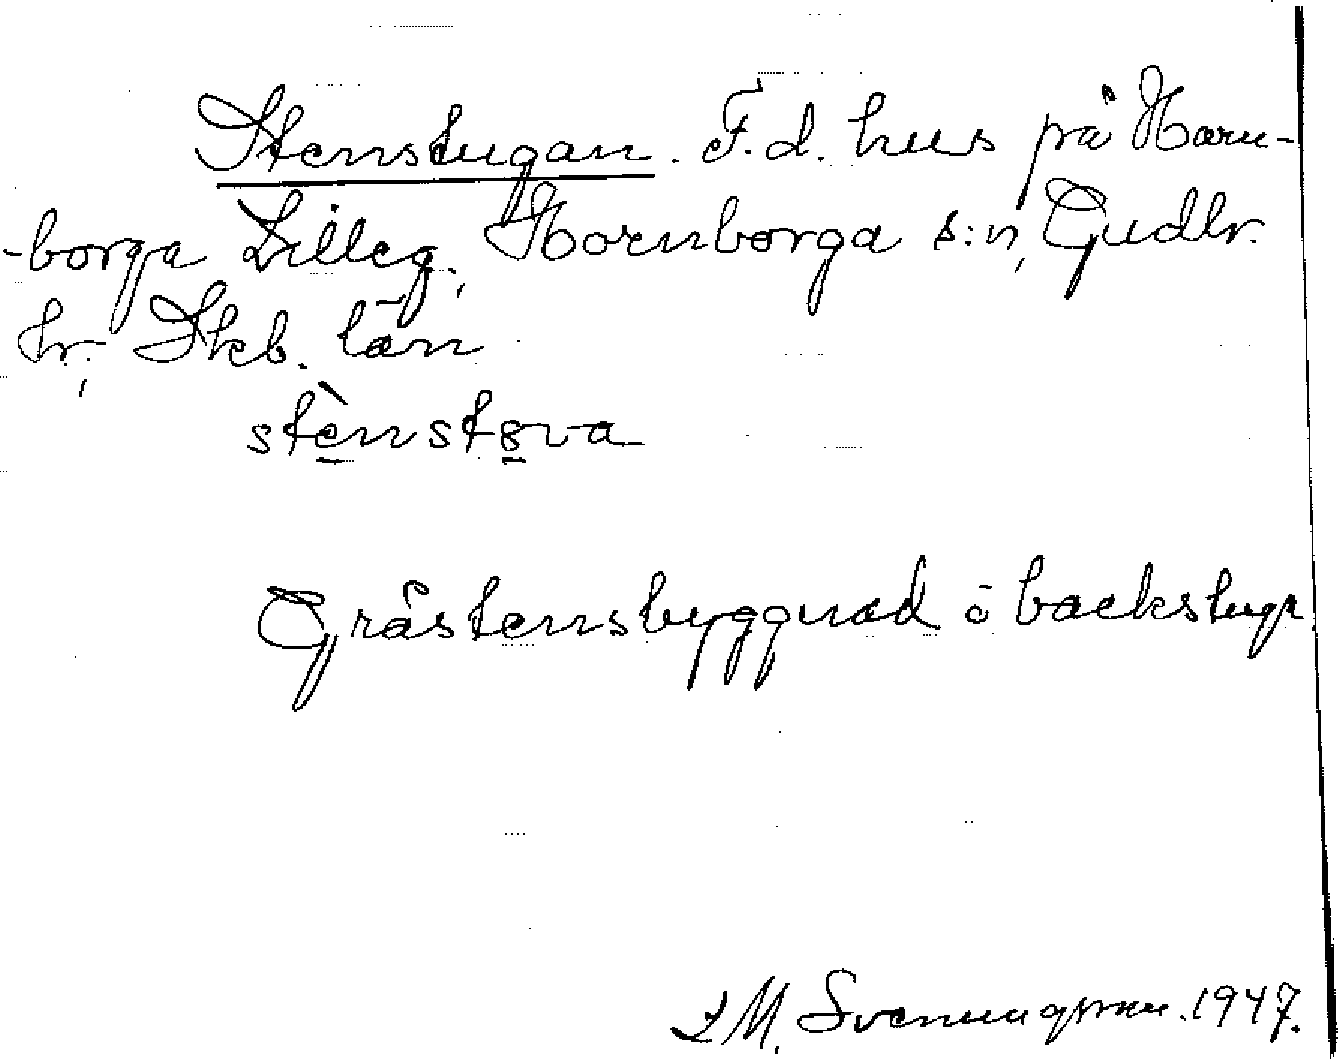 Stenstugan. F.d. hus på Horn-
-borga Lilleg., Hornborga s:n, Gudh.
hr., Skb. län
stènstɞva
Gråstensbyggnad o backstuga
M. Svenungsson. 1947.